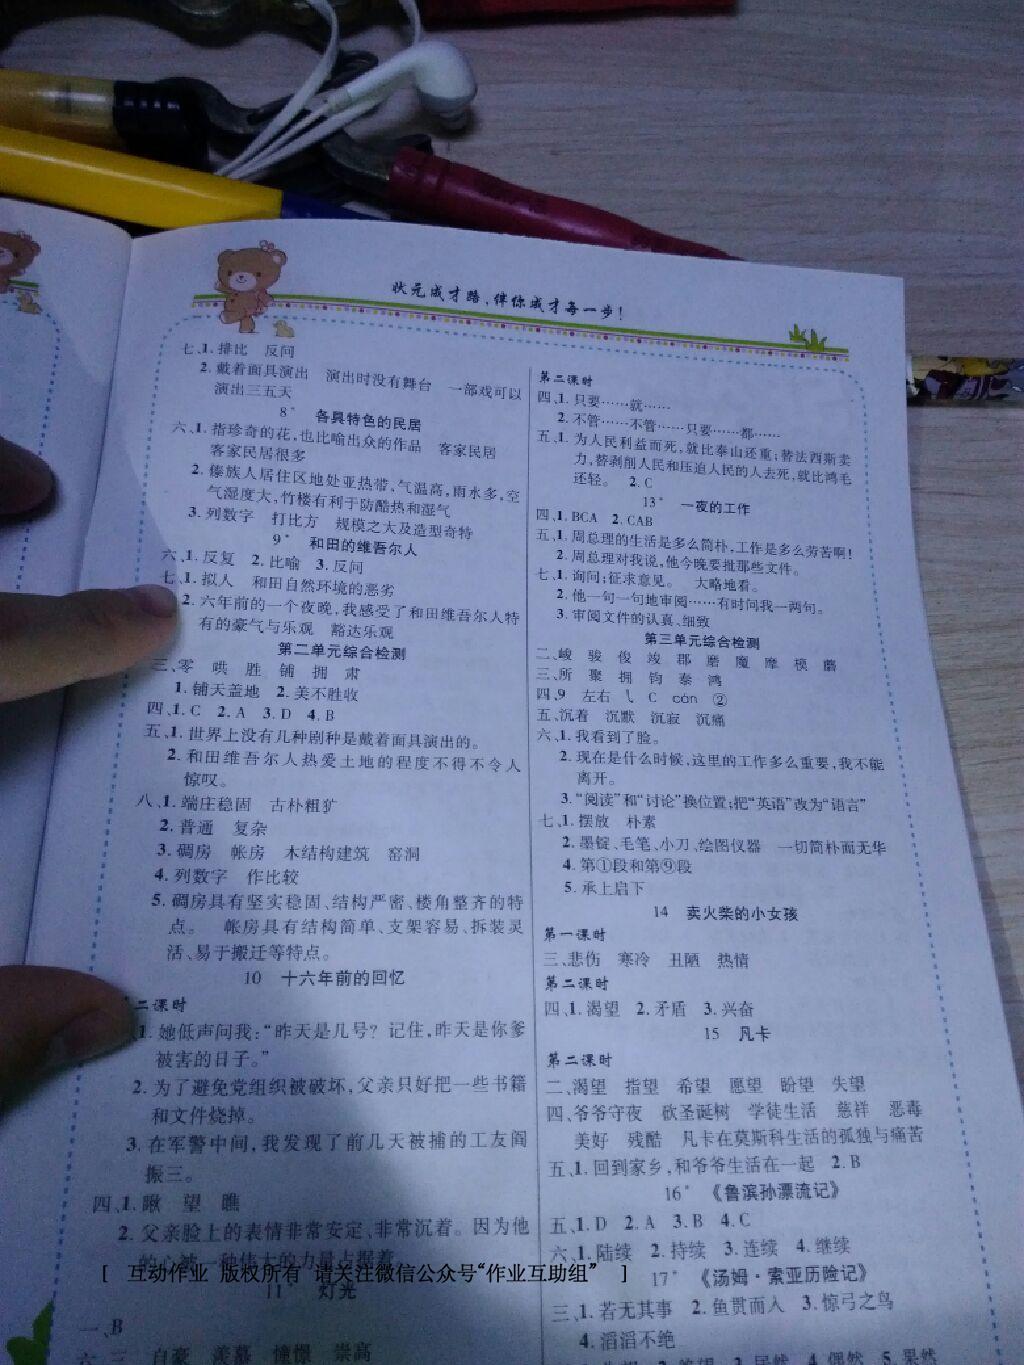 状元成才路,伴你成才每一步!
七、1. 排比 反问
2. 戴着面具演出 演出时没有舞台 一部戏可以
演出三五天
8* 各具特色的民居
六、1. 指珍奇的花,也比喻出众的作品 客家民居
客家民居很多
2. 傣族人居住区地处亚热带、气温高,雨水多,空
气湿度大,竹楼有利于防酷热和湿气
3. 列数字 打比方 规模之大及造型奇特
9* 和田的维吾尔人
六、1. 反复 2. 比喻 3. 反问
七、1. 拟人 和田自然环境的恶劣
2. 六年前的一个夜晚,我感受了和田维吾尔人特
有的豪气与乐观 豁达乐观
第二单元综合检测
三、零 哄 胜 铺 拥 肃
1. 铺天盖地 2. 美不胜收
四、1. C 2. A 3. D 4. B
五、1. 世界上没有几种剧种是戴着面具演出的。
2. 和田维吾尔人热爱土地的程度不得不令人
惊叹。
八、1. 端庄稳固 古朴粗犷
2. 普通 复杂
3. 碉房 帐房 木结构建筑 窑洞
4. 列数字 作比较
5. 碉房具有坚实稳固、结构严密、楼角整齐的特
点。 帐房具有结构简单、支架容易、拆装灵
活、易于搬迁等特点。
10 十六年前的回忆
二课时
1. 她低声问我:“昨天是几号? 记住,昨天是你爹
被害的日子。”
2. 为了避免党组织被破坏,父亲只好把一些书籍
和文件烧掉。
3. 在军警中间,我发现了前几天被捕的工友阎
振三。
四、1. 瞅 望 瞧
2. 父亲脸上的表情非常安定、非常沉着。因为他
的心被一种伟大的力量占据着
11* 灯光
一、B
六、三 自豪 羡慕 憧憬 崇高
第二课时
四、1. 只要……就……
2. 不管……不管……只要……都……
五、1. 为人民利益而死,就比泰山还重;替法西斯卖
力,替剥削人民和压迫人民的人去死,就比鸿毛
还轻。 2. C
13* 一夜的工作
四、1. BCA 2. CAB
五、1. 周总理的生活是多么简朴,工作是多么劳苦啊!
2. 周总理对我说,他今晚要批那些文件。
七、1. 询问;征求意见。 大略地看。
2. 他一句一句地审阅……有时问我一两句。
3. 审阅文件的认真、细致
第三单元综合检测
二、峻 骏 俊 竣 郡 磨 魔 摩 模 蘑
三、所 聚 拥 钧 泰 鸿
四、9 左右 ㇂ C cán ②
五、沉着 沉默 沉寂 沉痛
六、1. 我看到了脸。
2. 现在是什么时候,这里的工作多么重要,我不能
离开。
3. “阅读”和“讨论”换位置;把“英语”改为“语言”
七、1. 摆放 朴素
2. 墨锭、毛笔、小刀、绘图仪器 一切简朴而无华
4. 第①段和第⑨段
5. 承上启下
14 卖火柴的小女孩
第一课时
三、悲伤 寒冷 丑陋 热情
第二课时
四、1. 渴望 2. 矛盾 3. 兴奋
15 凡卡
第二课时
二、渴望 指望 希望 愿望 盼望 失望
四、爷爷守夜 砍圣诞树 学徒生活 慈祥 恶毒
美好 残酷 凡卡在莫斯科生活的孤独与痛苦
五、1. 回到家乡,和爷爷生活在一起 2. B
16* 《鲁滨孙漂流记》
五、1. D 2. A 3. B 4. C
六、1. 陆续 2. 持续 3. 连续 4. 继续
17* 《汤姆·索亚历险记》
三、1. 若无其事 2. 鱼贯而入 3. 惊弓之鸟
4. 滔滔不绝
4. 偶然 5. 果然
[ 互动作业 版权所有 请关注微信公众号“作业互助组” ]